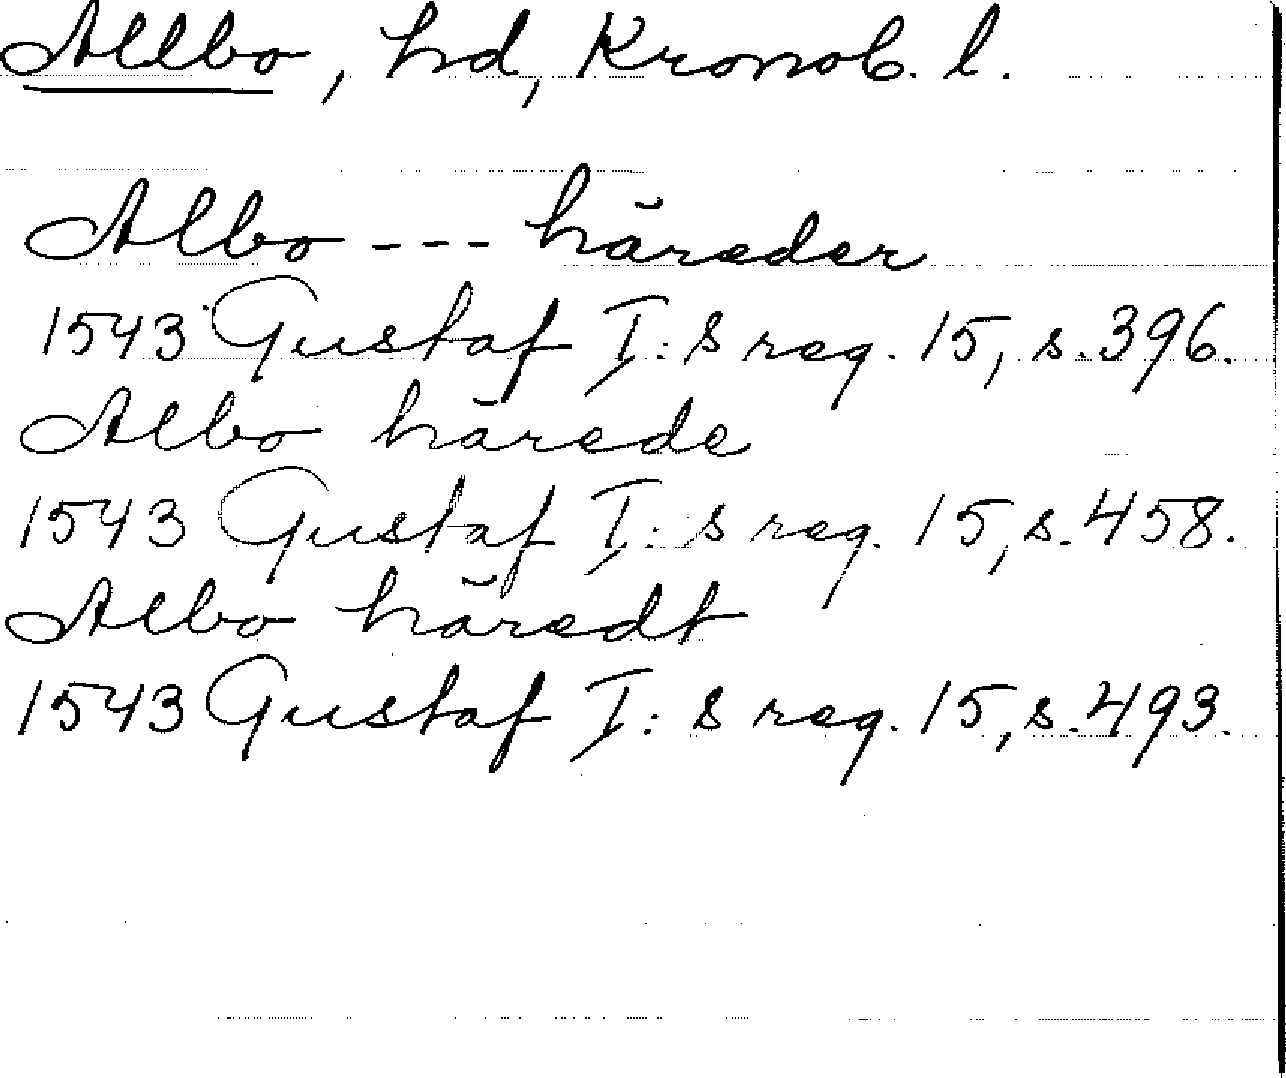 Allbo, hd, Kronob. l.
Albo --- häreder
1543 Gustaf I:s reg. 15, s. 396.
Albo härede
1543 Gustaf I:s reg. 15, s. 458.
Albo häredt
1543 Gustaf I:s reg. 15, s. 493.